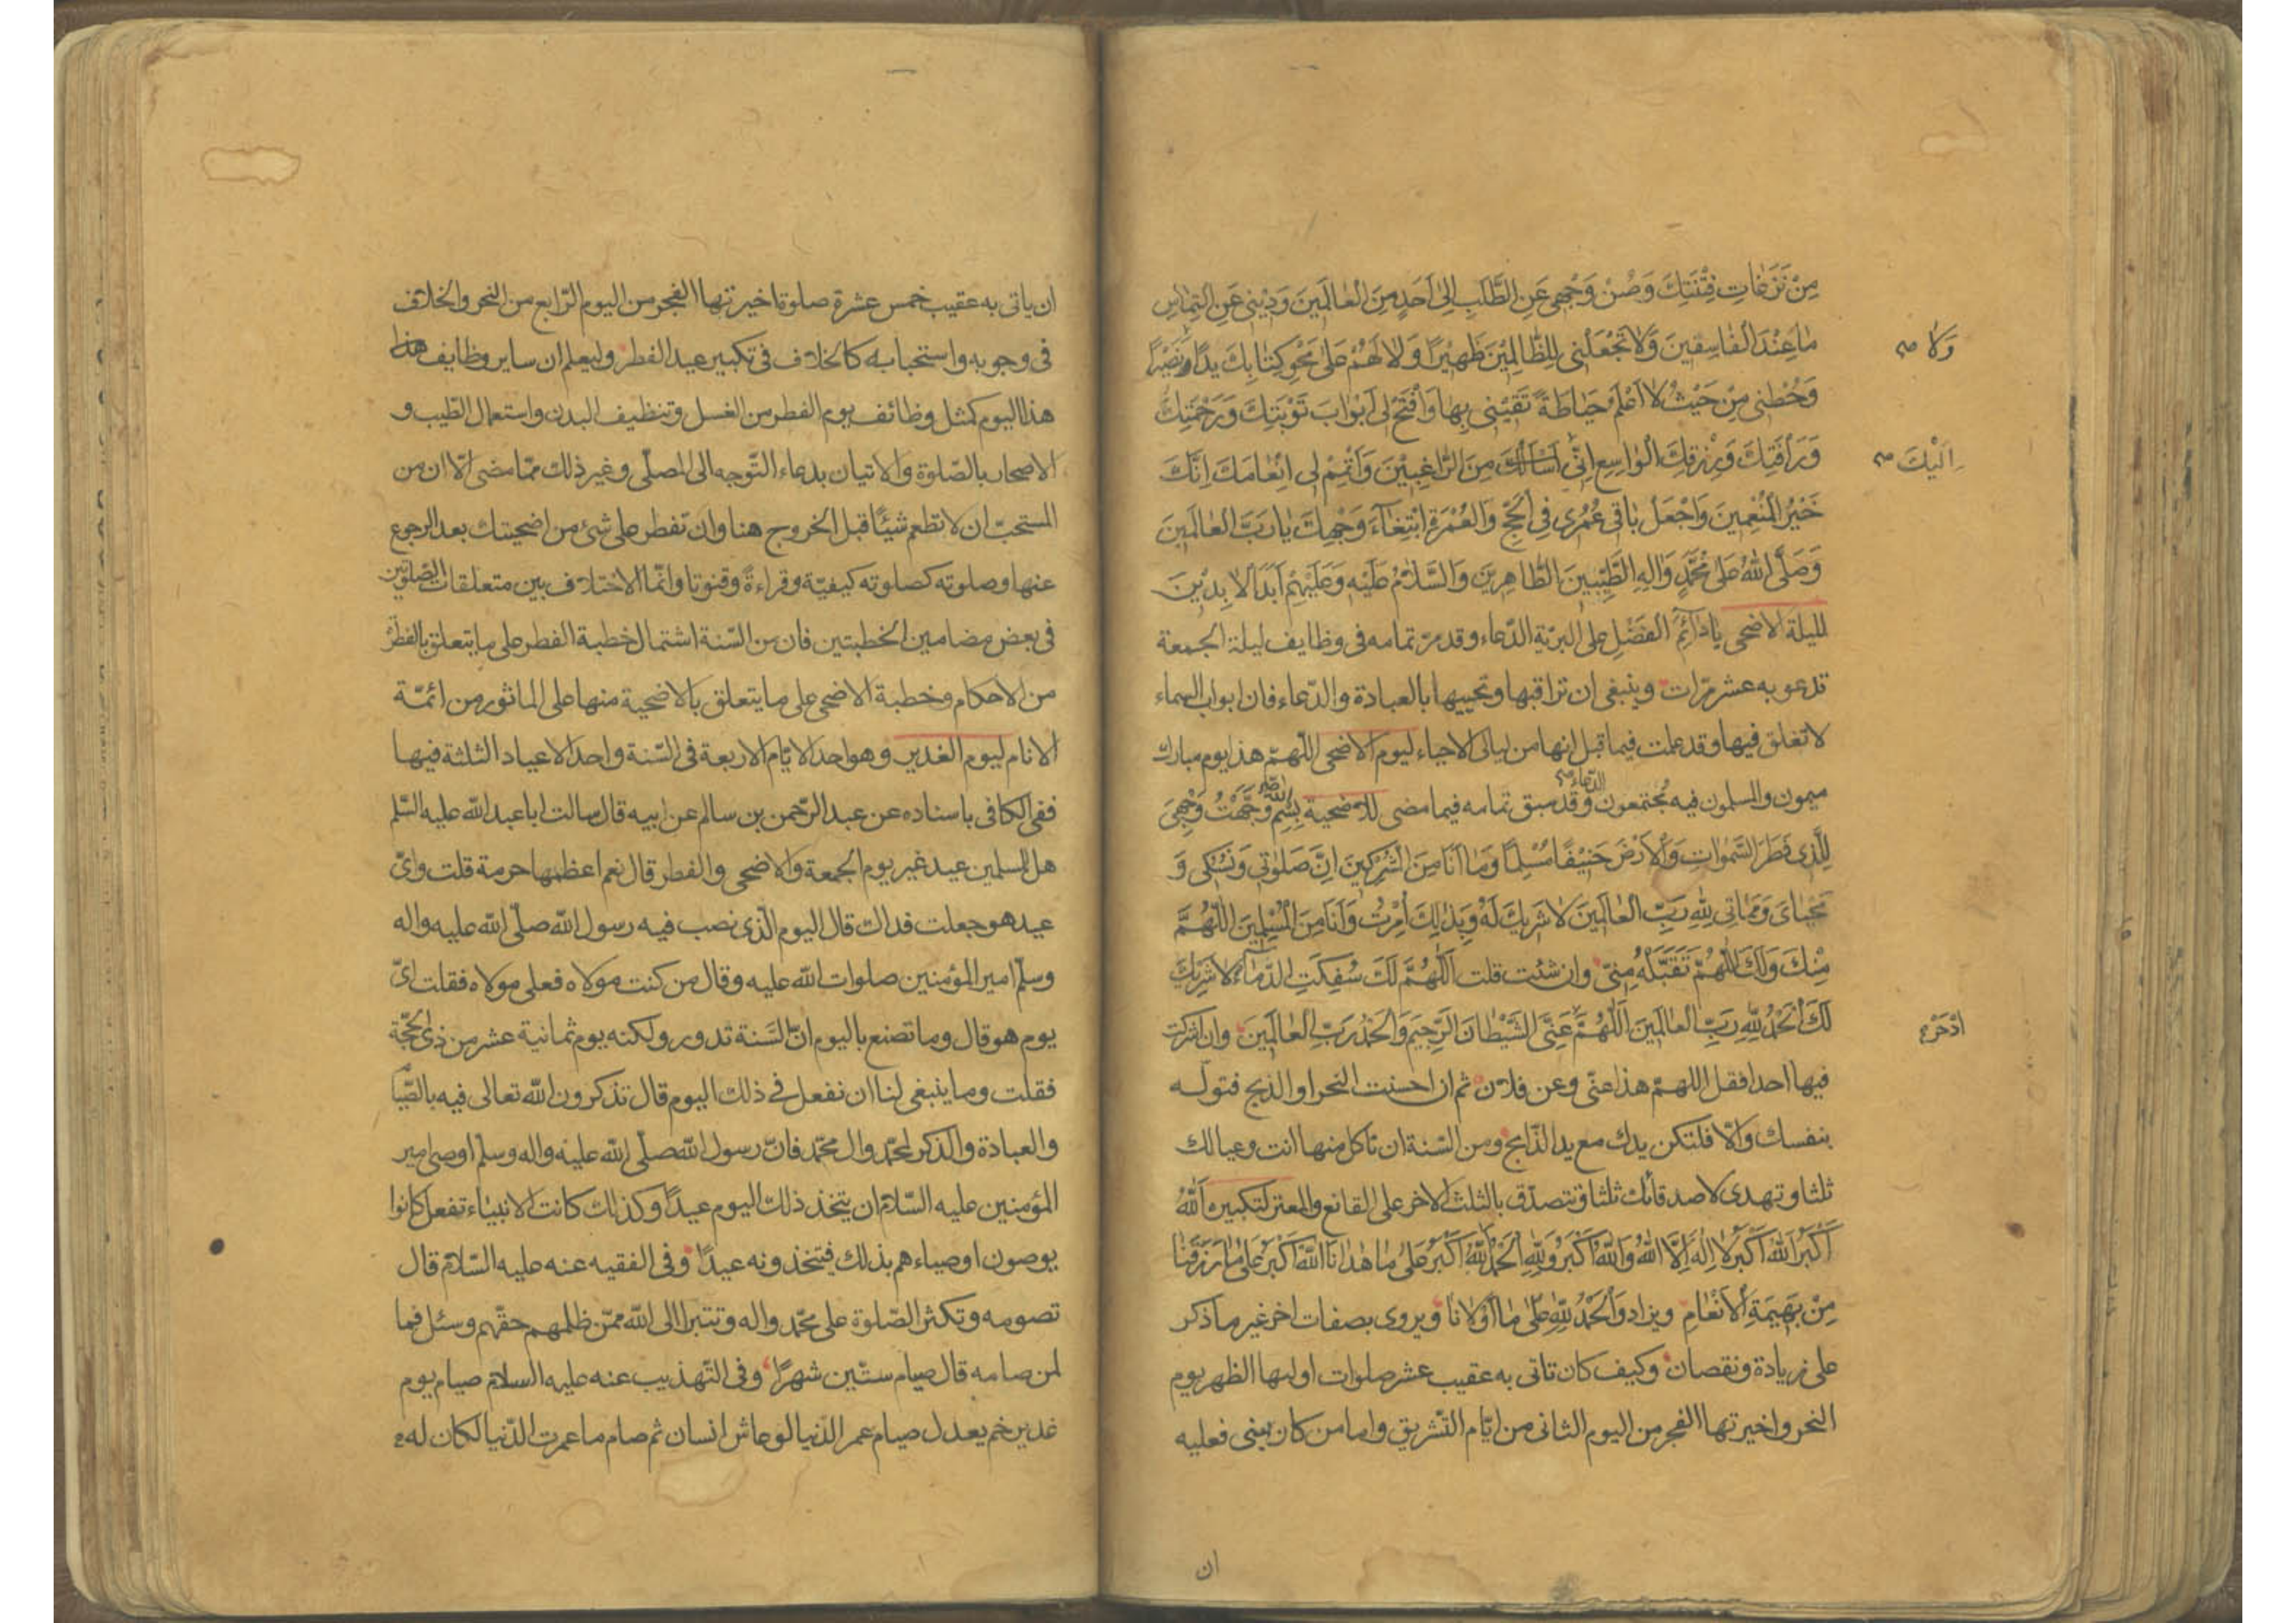 مِنْ نَزَغاتِ فِتْنَتِكَ وَصُنْ وَجْهى عَنِ الطَّلَبِ اِلى اَحَدٍ مِنَ الْعالَمينَ وَدينى عَنِ الْتِماسِ
ما عِنْدَ الْفاسِقينَ وَلا تَجْعَلْنى لِلظّالِمينَ ظَهيرًا وَلا لَهُمْ عَلى مَحْوِ كِتابِكَ يَدًا وَنَصيرًا
وَلا صح
وَحُطْنى مِنْ حَيْثُ لا اَعْلَمُ حِياطَةً تَقينى بِها وَافْتَحْ لى اَبْوابَ تَوْبَتِكَ وَرَحْمَتِكَ
وَرَأْفَتِكَ وَرِزْقِكَ الْواسِعِ اِنّى اَسْأَلُكَ مِنَ الرّاغِبينَ وَاَتْمِمْ لى اِنْعامَكَ اِنَّكَ
اِلَيْكَ صح
خَيْرُ الْمُنْعِمينَ وَاجْعَلْ باقى عُمُرى فِى الْحَجِّ وَالْعُمْرَةِ ابْتِغاءَ وَجْهِكَ يا رَبَّ الْعالَمينَ
وَصَلَّى اللّهُ عَلى مُحَمَّدٍ وَالِهِ الطَّيِّبينَ الطّاهِرينَ وَالسَّلامُ عَلَيْهِ وَعَلَيْهِمْ اَبَدَ الْابِدينَ
لليلة الاضحى يا دائِمَ الفَضْلِ على البريّة الدّعاء وقد مرّ تمامه فى وظايف ليلة الجمعة
تدعو به عشر مرّات وينبغى ان تراقبها وتحييها بالعبادة والدّعاء فان ابواب السماء
لا تغلق فيها وقد علمت فيما قبل انها من ليالى الاحياء ليوم الاضحى اللّهمّ هذا يوم مبارك
ميمون والمسلمون فيه مجتمعون الدعاء صح وقد سبق تمامه فيما مضى للاضحية بِسْمِ اللّه وَجَّهْتُ وَجْهِىَ
لِلَّذى فَطَرَ السَّمواتِ وَالْاَرْضَ حَنيفًا مُسْلِمًا وَما اَنَا مِنَ الْمُشْرِكينَ اِنَّ صَلوتى وَنُسُكى وَ
مَحْياىَ وَمَماتى لِلّهِ رَبِّ الْعالَمينَ لا شَريكَ لَهُ وَبِذلِكَ اُمِرْتُ وَاَنَا مِنَ الْمُسْلِمينَ اَللّهُمَّ
مِنْكَ وَلَكَ اَللّهُمَّ تَقَبَّلْهُ مِنّى وان شئت قلت اَللّهُمَّ لَكَ سُفِكَتِ الدِّماءُ لا شَريكَ
لَكَ اَلْحَمْدُ لِلّهِ رَبِّ الْعالَمينَ اَللّهُمَّ عَنِّى الشَّيْطانَ الرَّجيمَ وَالْحَمْدُ رَبِّ الْعالَمينَ وان اشركت
ادْحَرْ
فيها احدا فقل اللهمّ هذا عنّى وعن فلان ثم ان احسنت النحر او الذبح فتولّه
بنفسك والّا فلتكن يدك مع يد الذّابح ومن السّنة ان تاكل منها انت وعيالك
ثلثا وتهدى لاصدقائك ثلثا وتتصدّق بالثلث الاخر على القانع والمعتر لتكبيره اَللّهُ
اَكْبَرُ اَللّهُ اَكْبَرُ لا اِلهَ اِلَّا اللّهُ وَاللّهُ اَكْبَرُ وَلِلّهِ الْحَمْدُ اَللّهُ اَكْبَرُ عَلى ما هَدانا اَللّهُ اَكْبَرُ عَلى ما رَزَقَنا
مِنْ بَهيمَةِ الْاَنْعامِ ويزاد وَالْحَمْدُ لِلّهِ عَلى ما اَوْلانا ويروى بصفات اخر غير ما ذكر
على زيادة ونقصان وكيف كان تاتى به عقيب عشر صلوات اولها الظهر يوم
النحر واخيرتها الفجر من اليوم الثانى من ايّام التّشريق واما من كان بمنى فعليه
ان
ان ياتى به عقيب خمس عشرة صلوة اخيرتها الفجر من اليوم الرّابع من النحر والخلاف
فى وجوبه واستحبابه كالخلاف فى تكبير عيد الفطر وليعلم ان ساير وظايف هذا
هذا اليوم كمثل وظائف يوم الفطر من الغسل وتنظيف البدن واستعمال الطّيب و
الاصحار بالصّلوة والاتيان بدعاء التّوجه الى المصلّى وغير ذلك ممّا مضى الّا ان من
المستحبّ ان لا تطعم شيئًا قبل الخروج هنا وان تفطر على شئ من اضحيتك بعد الرجوع
عنها وصلوته كصلوته كيفيّة وقراءةً وقنوتا وانّما الاختلاف بين متعلقات الصّلوتين
فى بعض مضامين الخطبتين فان من السّنة اشتمال خطبة الفطر على ما يتعلق بالفطرة
من الاحكام وخطبة الاضحى على ما يتعلق بالاضحية منها على الماثور من ائمّة
الانام ليوم الغدير وهو احد الايّام الاربعة فى السّنة واحد الاعياد الثلثة فيها
ففى الكافى باسناده عن عبد الرّحمن بن سالم عن ابيه قال سالت ابا عبد اللّه عليه السّلم
هل للمسلمين عيد غير يوم الجمعة والاضحى والفطر قال نعم اعظمها حرمة قلت واىّ
عيد هو جعلت فداك قال اليوم الّذى نصب فيه رسول اللّه صلّى اللّه عليه واله
وسلّم امير المؤمنين صلوات اللّه عليه وقال من كنت مولاه فعلى مولاه فقلت اىّ
يوم هو قال وما تصنع باليوم انّ السّنة تدور ولكنه يوم ثمانية عشر من ذى الحجّة
فقلت وما ينبغى لنا ان نفعل فى ذلك اليوم قال تذكرون اللّه تعالى فيه بالصّيا
والعبادة والذكر لمحمّد وال محمّد فانّ رسول اللّه صلّى اللّه عليه واله وسلّم اوصى امير
المؤمنين عليه السّلام ان يتخذ ذلك اليوم عيدًا وكذلك كانت الانبياء تفعل كانوا
يوصون اوصياءهم بذلك فيتخذونه عيدًا وفى الفقيه عنه عليه السّلام قال
تصومه وتكثر الصّلوة على محمّد واله وتتبرا الى اللّه ممّن ظلمهم حقّهم وسئل فما
لمن صامه قال صيام ستّين شهرًا وفى التّهذيب عنه عليه السلام صيام يوم
غدير خم يعدل صيام عمر الدّنيا لو عاش انسان ثم صام ما عمرت الدّنيا لكان له